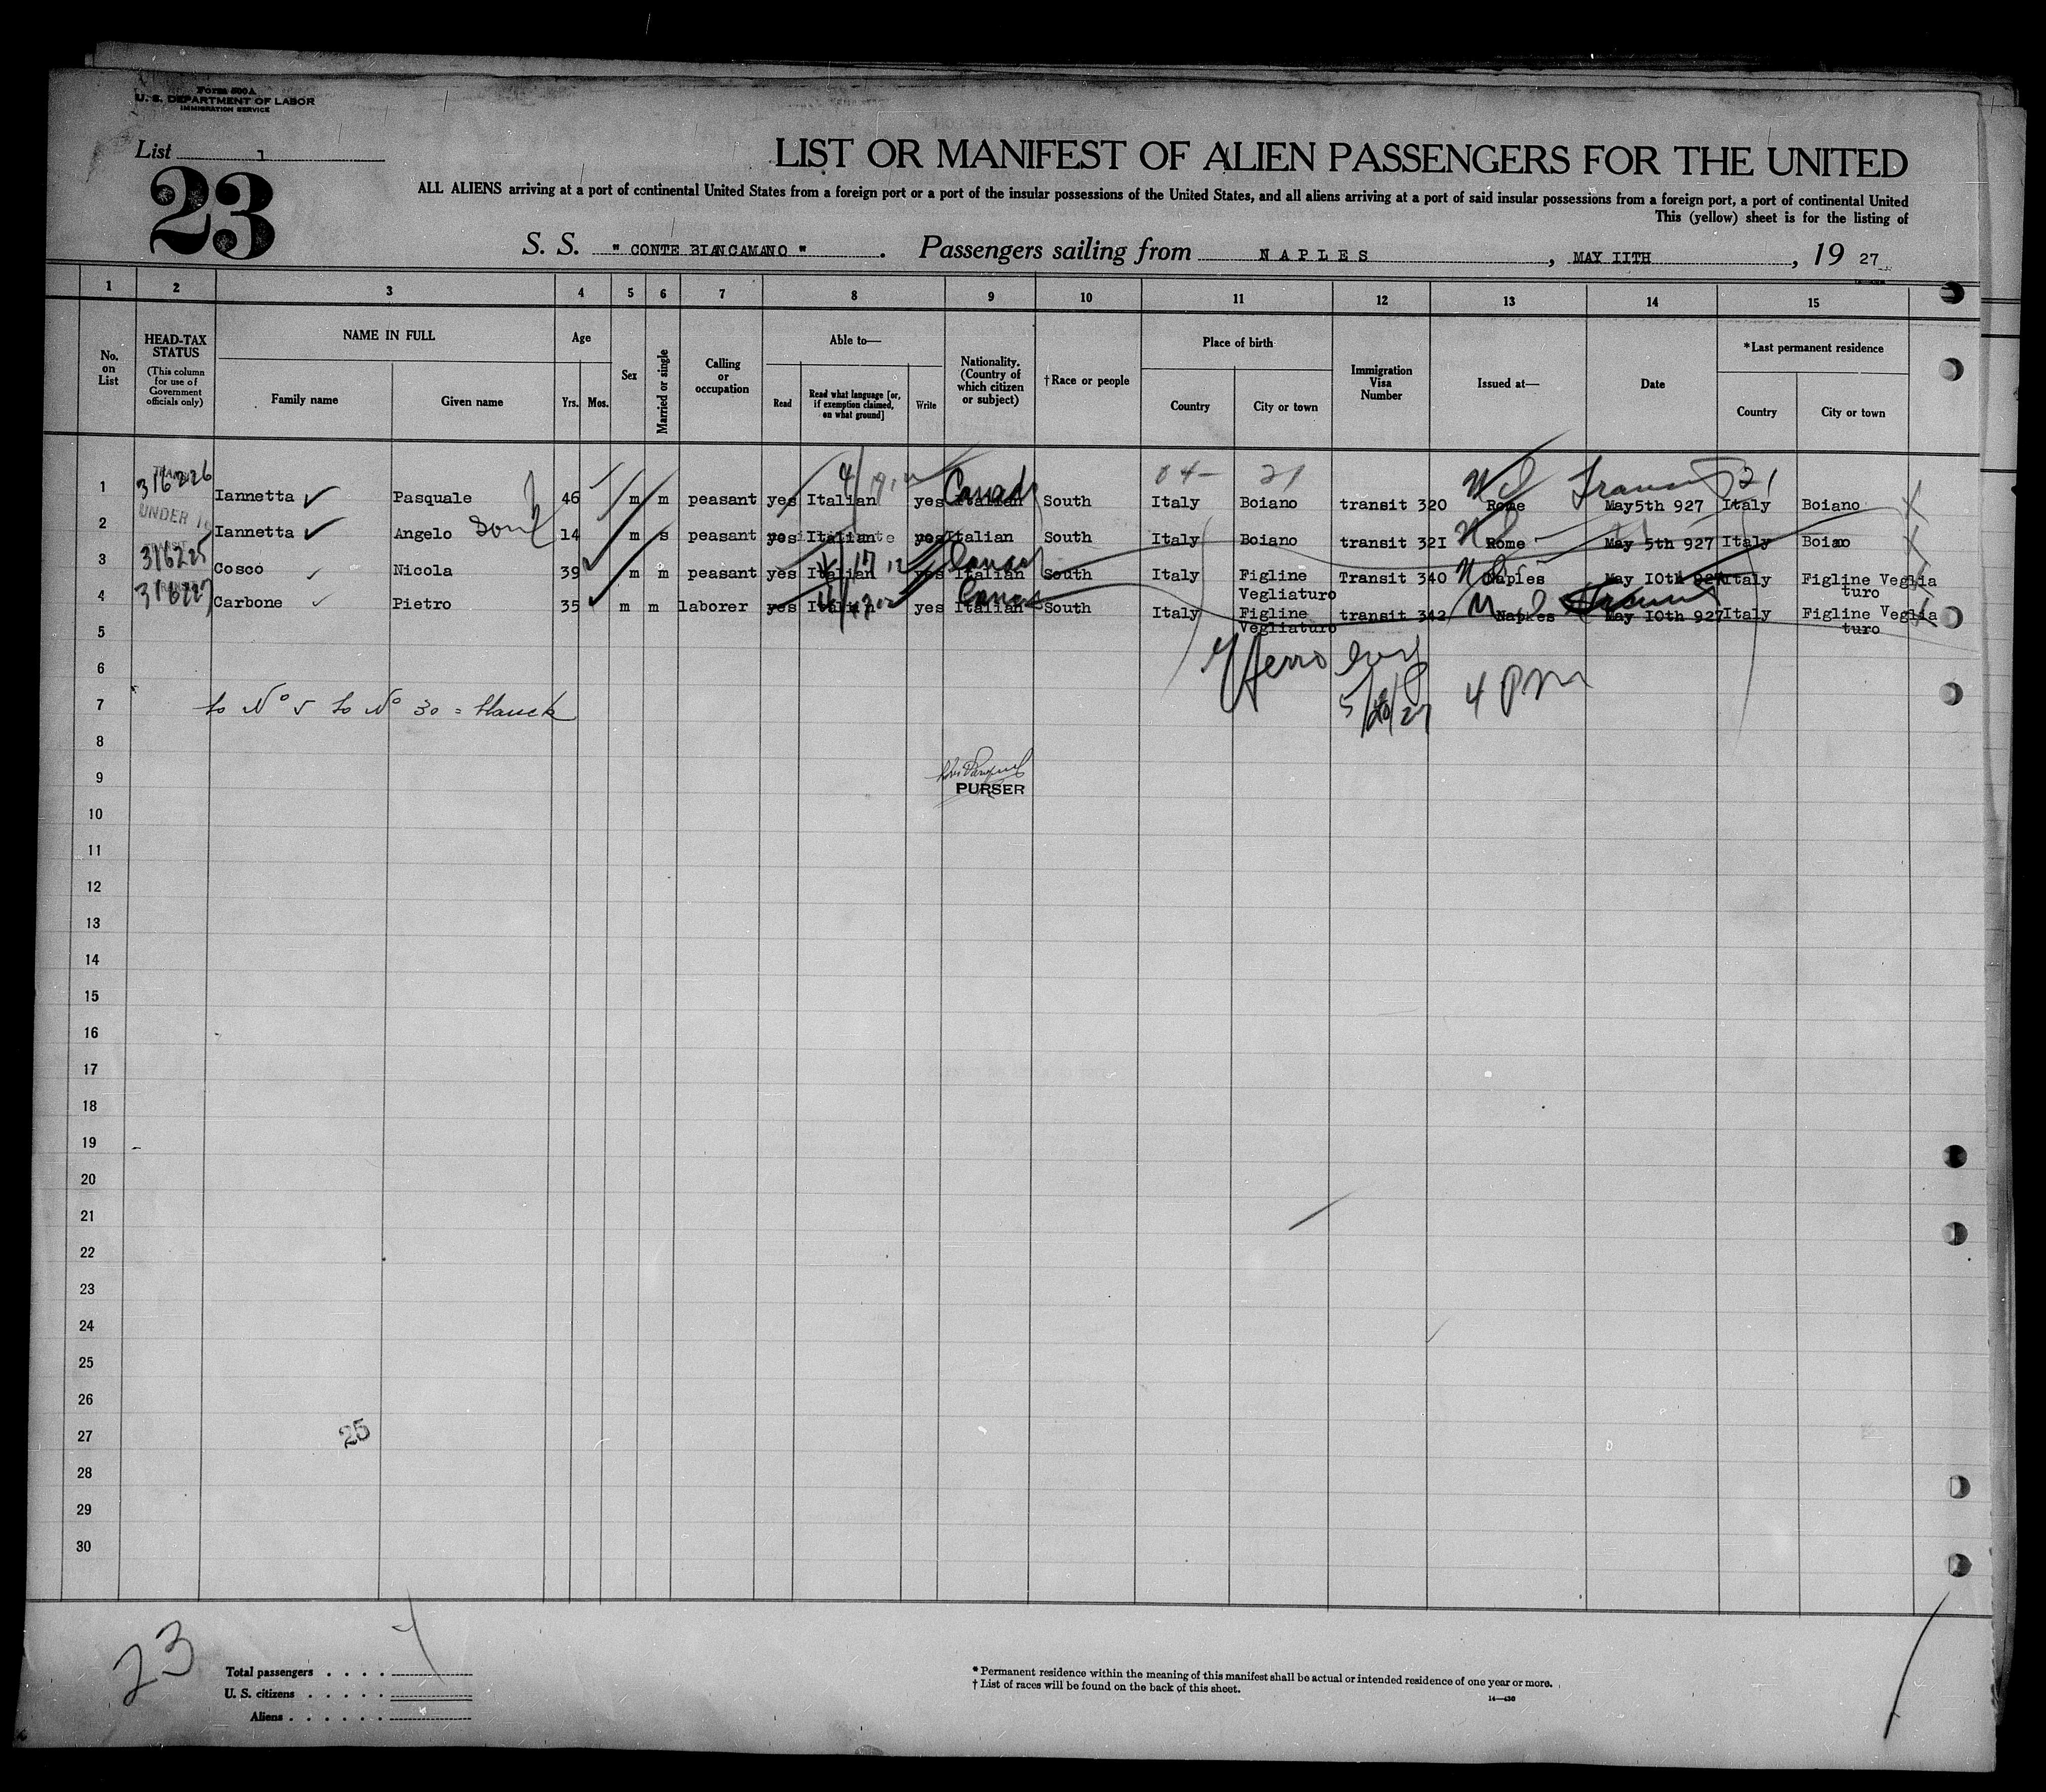 Form 500A
U. S. DEPARTMENT OF LABOR
IMMIGRATION SERVICE
List 1
23
LIST OR MANIFEST OF ALIEN PASSENGERS FOR THE UNITED
ALL ALIENS arriving at a port of continental United States from a foreign port or a port of the insular possessions of the United States, and all aliens arriving at a port of said insular possessions from a foreign port, a port of continental United
This (yellow) sheet is for the listing of
S. S. " CONTE BIANCAMANO ". Passengers sailing from NAPLES, MAY IITH, 19 27
1 2 3 4 5 6 7 8 9 10 11 12 13 14 15
No. on List
HEAD-TAX STATUS
(This column for use of Government officials only)
NAME IN FULL
Family name
Given name
Age
Yrs. Mos.
Sex
Married or single
Calling or occupation
Able to—
Read
Read what language [or, if exemption claimed, on what ground]
Write
Nationality. (Country of which citizen or subject)
†Race or people
Place of birth
Country
City or town
Immigration Visa Number
Issued at—
Date
*Last permanent residence
Country
City or town
316226
04- 21
Transit 21
1 Iannetta Pasquale 46 m m peasant yes Italian yes Italian South Italy Boiano transit 320 Rome May5th 927 Italy Boiano
Canada
UNDER 16
2 Iannetta Angelo son 14 m s peasant yes Italian yes Italian South Italy Boiano transit 32I Rome May 5th 927 Italy Boiano
316225
3 Cosco Nicola 39 m m peasant yes Italian yes Italian South Italy Figline Vegliaturo Transit 340 Naples May IOth 927 Italy Figline Vegliaturo
316227
4 Carbone Pietro 35 m m laborer yes Italian yes Italian South Italy Figline Vegliaturo transit 342 Naples May IOth 927 Italy Figline Vegliaturo
5
6
4 PM
7 to No 5 to No 30 =
8
9
PURSER
10
11
12
13
14
15
16
17
18
19
20
21
22
23
24
25
26
27
25
28
29
30
23
Total passengers . . . .
U. S. citizens . . . . .
Aliens . . . . . .
* Permanent residence within the meaning of this manifest shall be actual or intended residence of one year or more.
† List of races will be found on the back of this sheet.
14—436